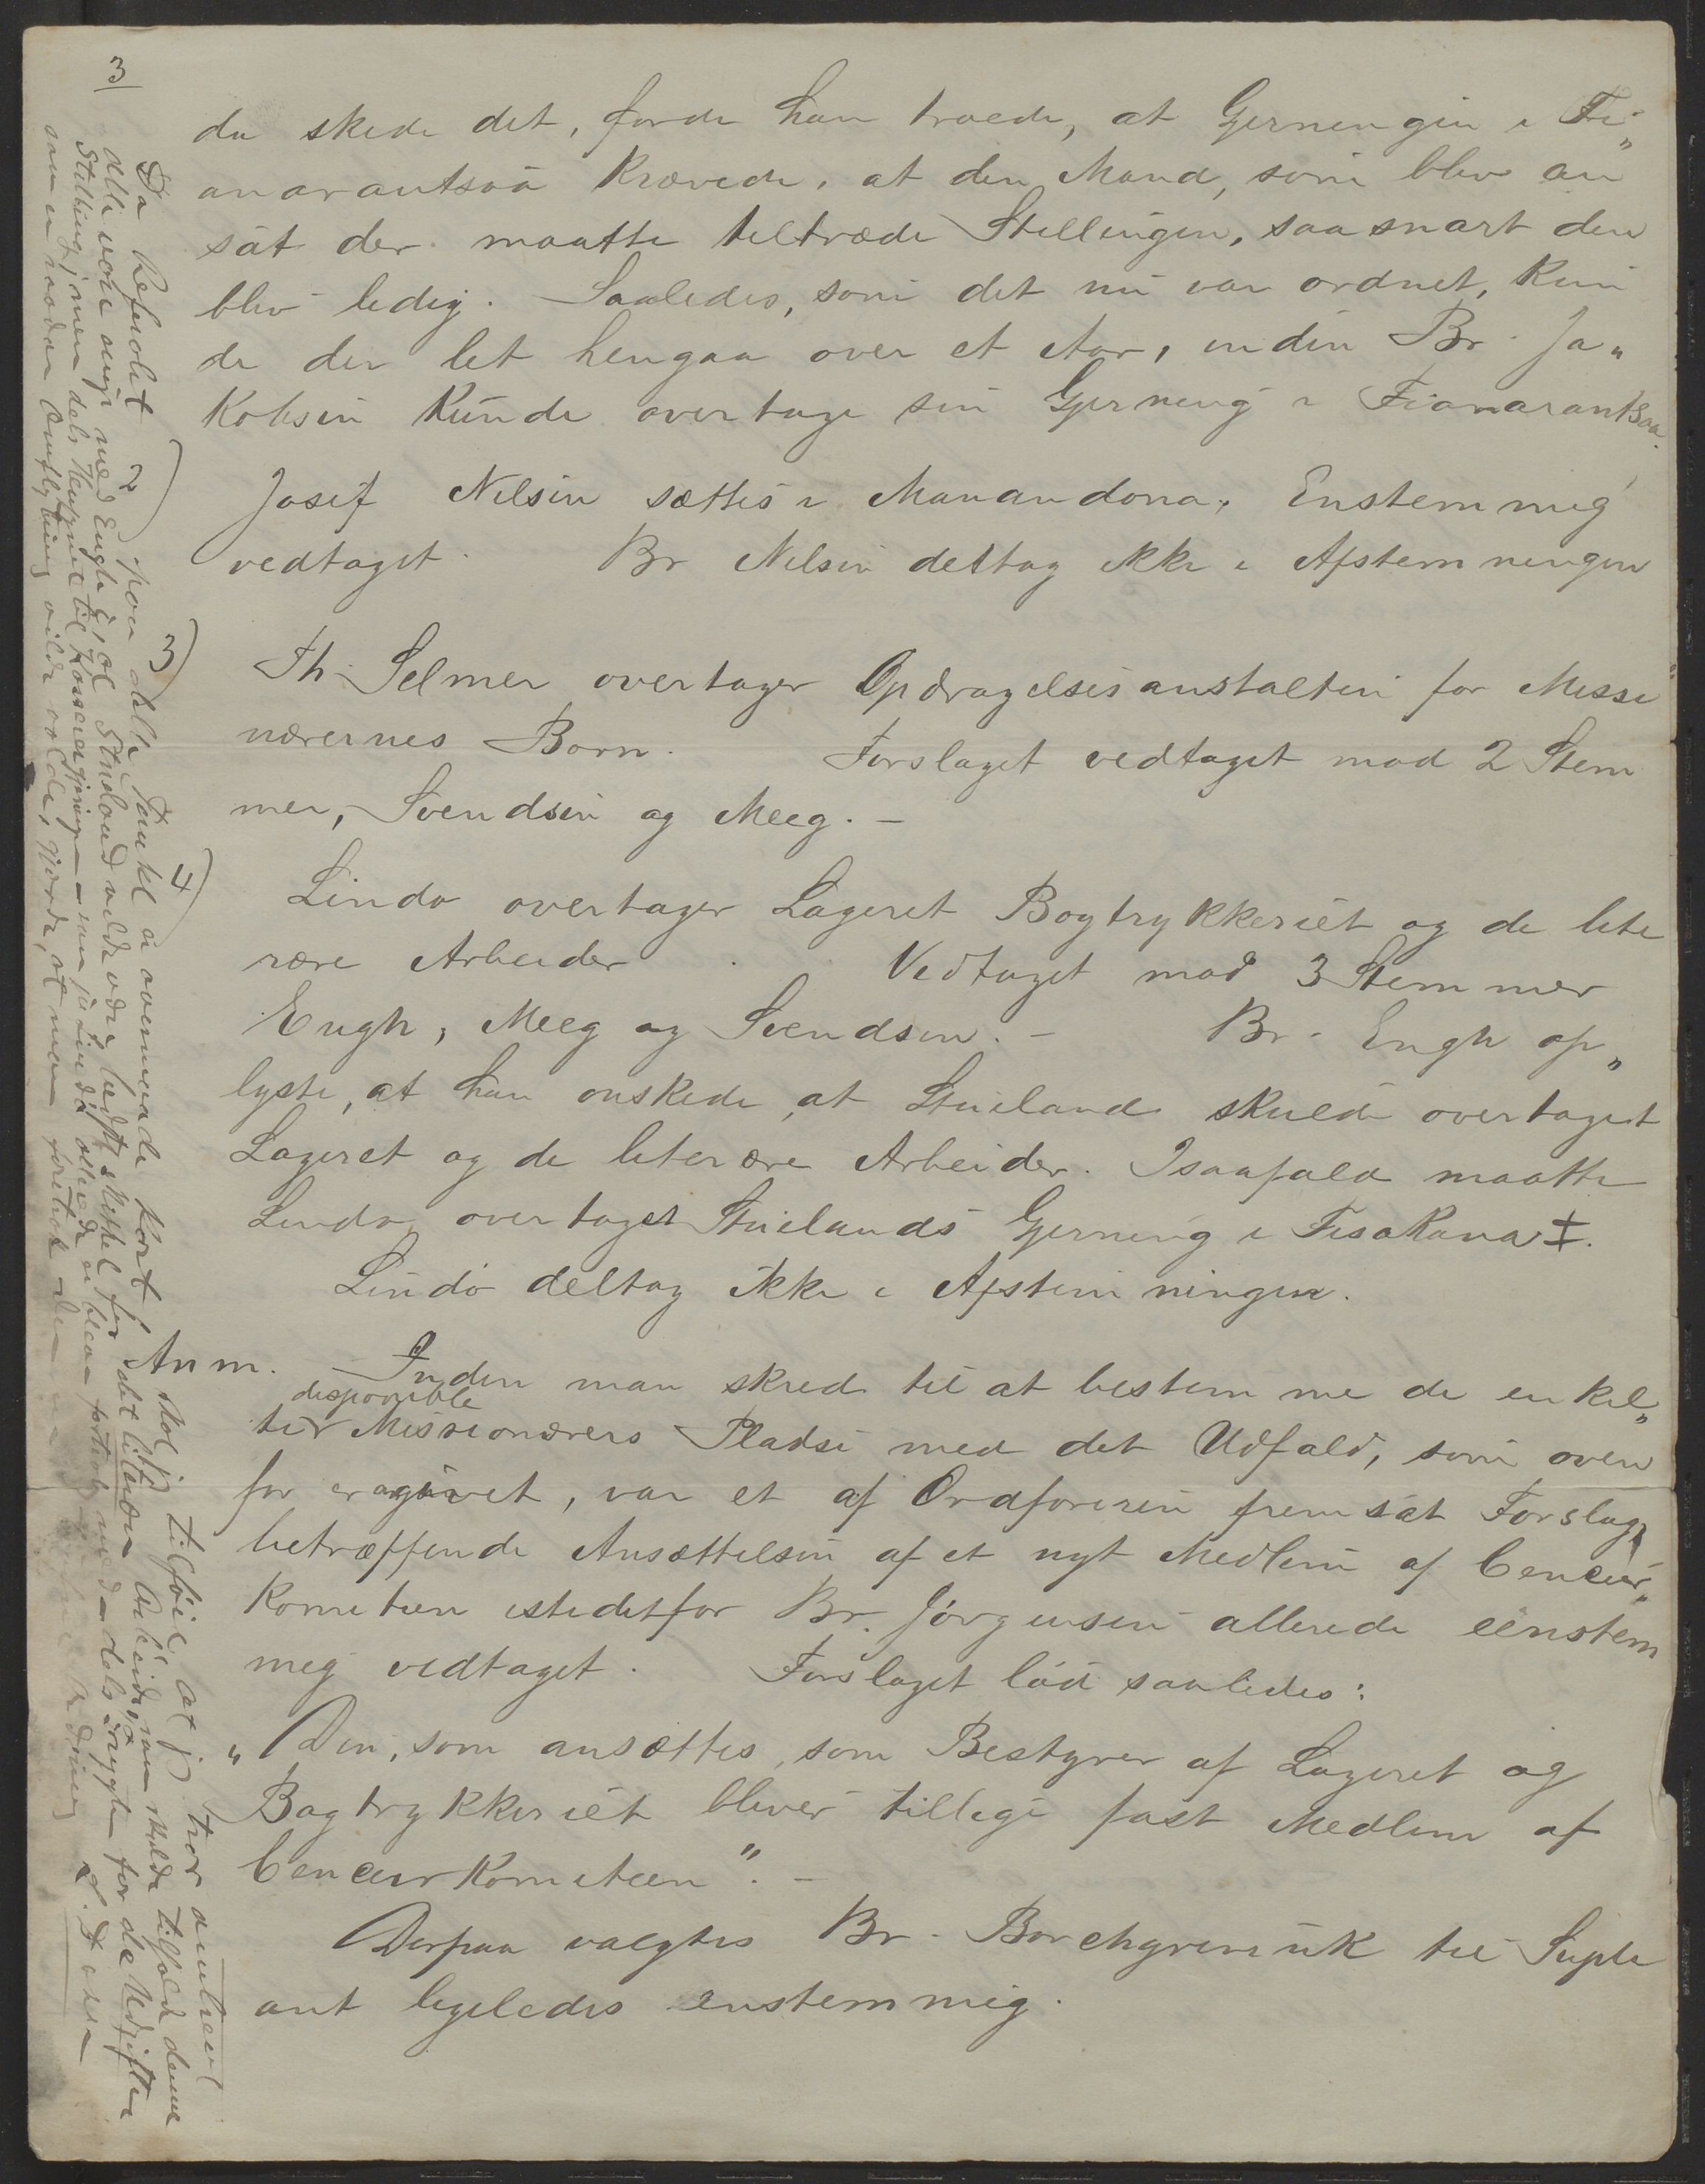 3
da skede det, fordi han troede, at Gjerningen i Fi„
anarantsoa krævede, at den Mand, som blev an
sat der maatte tiltræde Stillingen, saasnart den
blev ledig. Saaledes, som det nu var ordnet, kun
de der let hengaa over et Aar, inden Br. Ja„
kobsen kunde overtage sin Gjerning i Fianarantsoa.
2)
Josef Nilsen sættes i Manandona. Enstemmig
vedtaget. Br Nilsen deltog ikke i Afstemningen
3)
Th. Selmer overtager Opdragelsesanstalten for Missi„
nærernes Børn. Forslaget vedtaget mod 2 Stem
mer, Svendsen og Meeg. –
4)
Lindo overtager Lageret Bogtrykkeriet og de lite
rære Arbeider. Vedtaget mod 3 Stemmer
Engh, Meeg og Svendsen. – Br. Engh op„
lyste, at han ønskede, at Stueland skulde overtaget
Lageret og de literære Arbeider. Isaafald maatte
Lindo overtaget Stuelands Gjerning i Fisakana I.
Lindø deltog ikke i Afstemningen.
Anm. Inden man skred til at bestemme de enkel„
disponible
te Missionærers Pladse med det Udfald, som oven
for er angivet, var et af Ordføreren fremsat Forslag,
betræffende Ansættelsen af et nyt Medlem af Cencur„
Komiteen istedetfor Br. Jørgensen allerede eenstem
mig vedtaget. Forslaget lød saaledes:
„Den, som ansættes, som Bestyrer af Lageret og
Bogtrykkeriet bliver tillige fast Medlem af
Cencurkomiteen". –
Derpaa valgtes Br. Borchgrevink til Suple
ant ligeledes enstemmig.
Da Referatet paa dette Punkt er overmaade kort, skal jeg tilføie, at jeg tror ambeel
alle vare enige med Engh i, at Stueland vilde være bedst skikket for det literære Arbeide, som skulde tilfalde denne
Stilling; men dels Hensynet til
som en saadan Omflytning vilde volde, gjorde, at man foretrak den